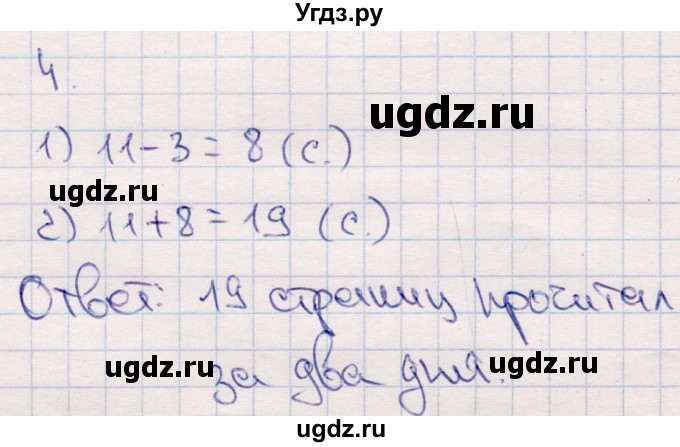 Угдз.ру
4.
ugdz.ru
1) 11-3=8 (с.)
ugdz.ru
2) 11+8=19 (с.)
Ответ: 19 страниц прочитал
ugdz.ru ugdz.ru
за два дня.
ugdz.ru